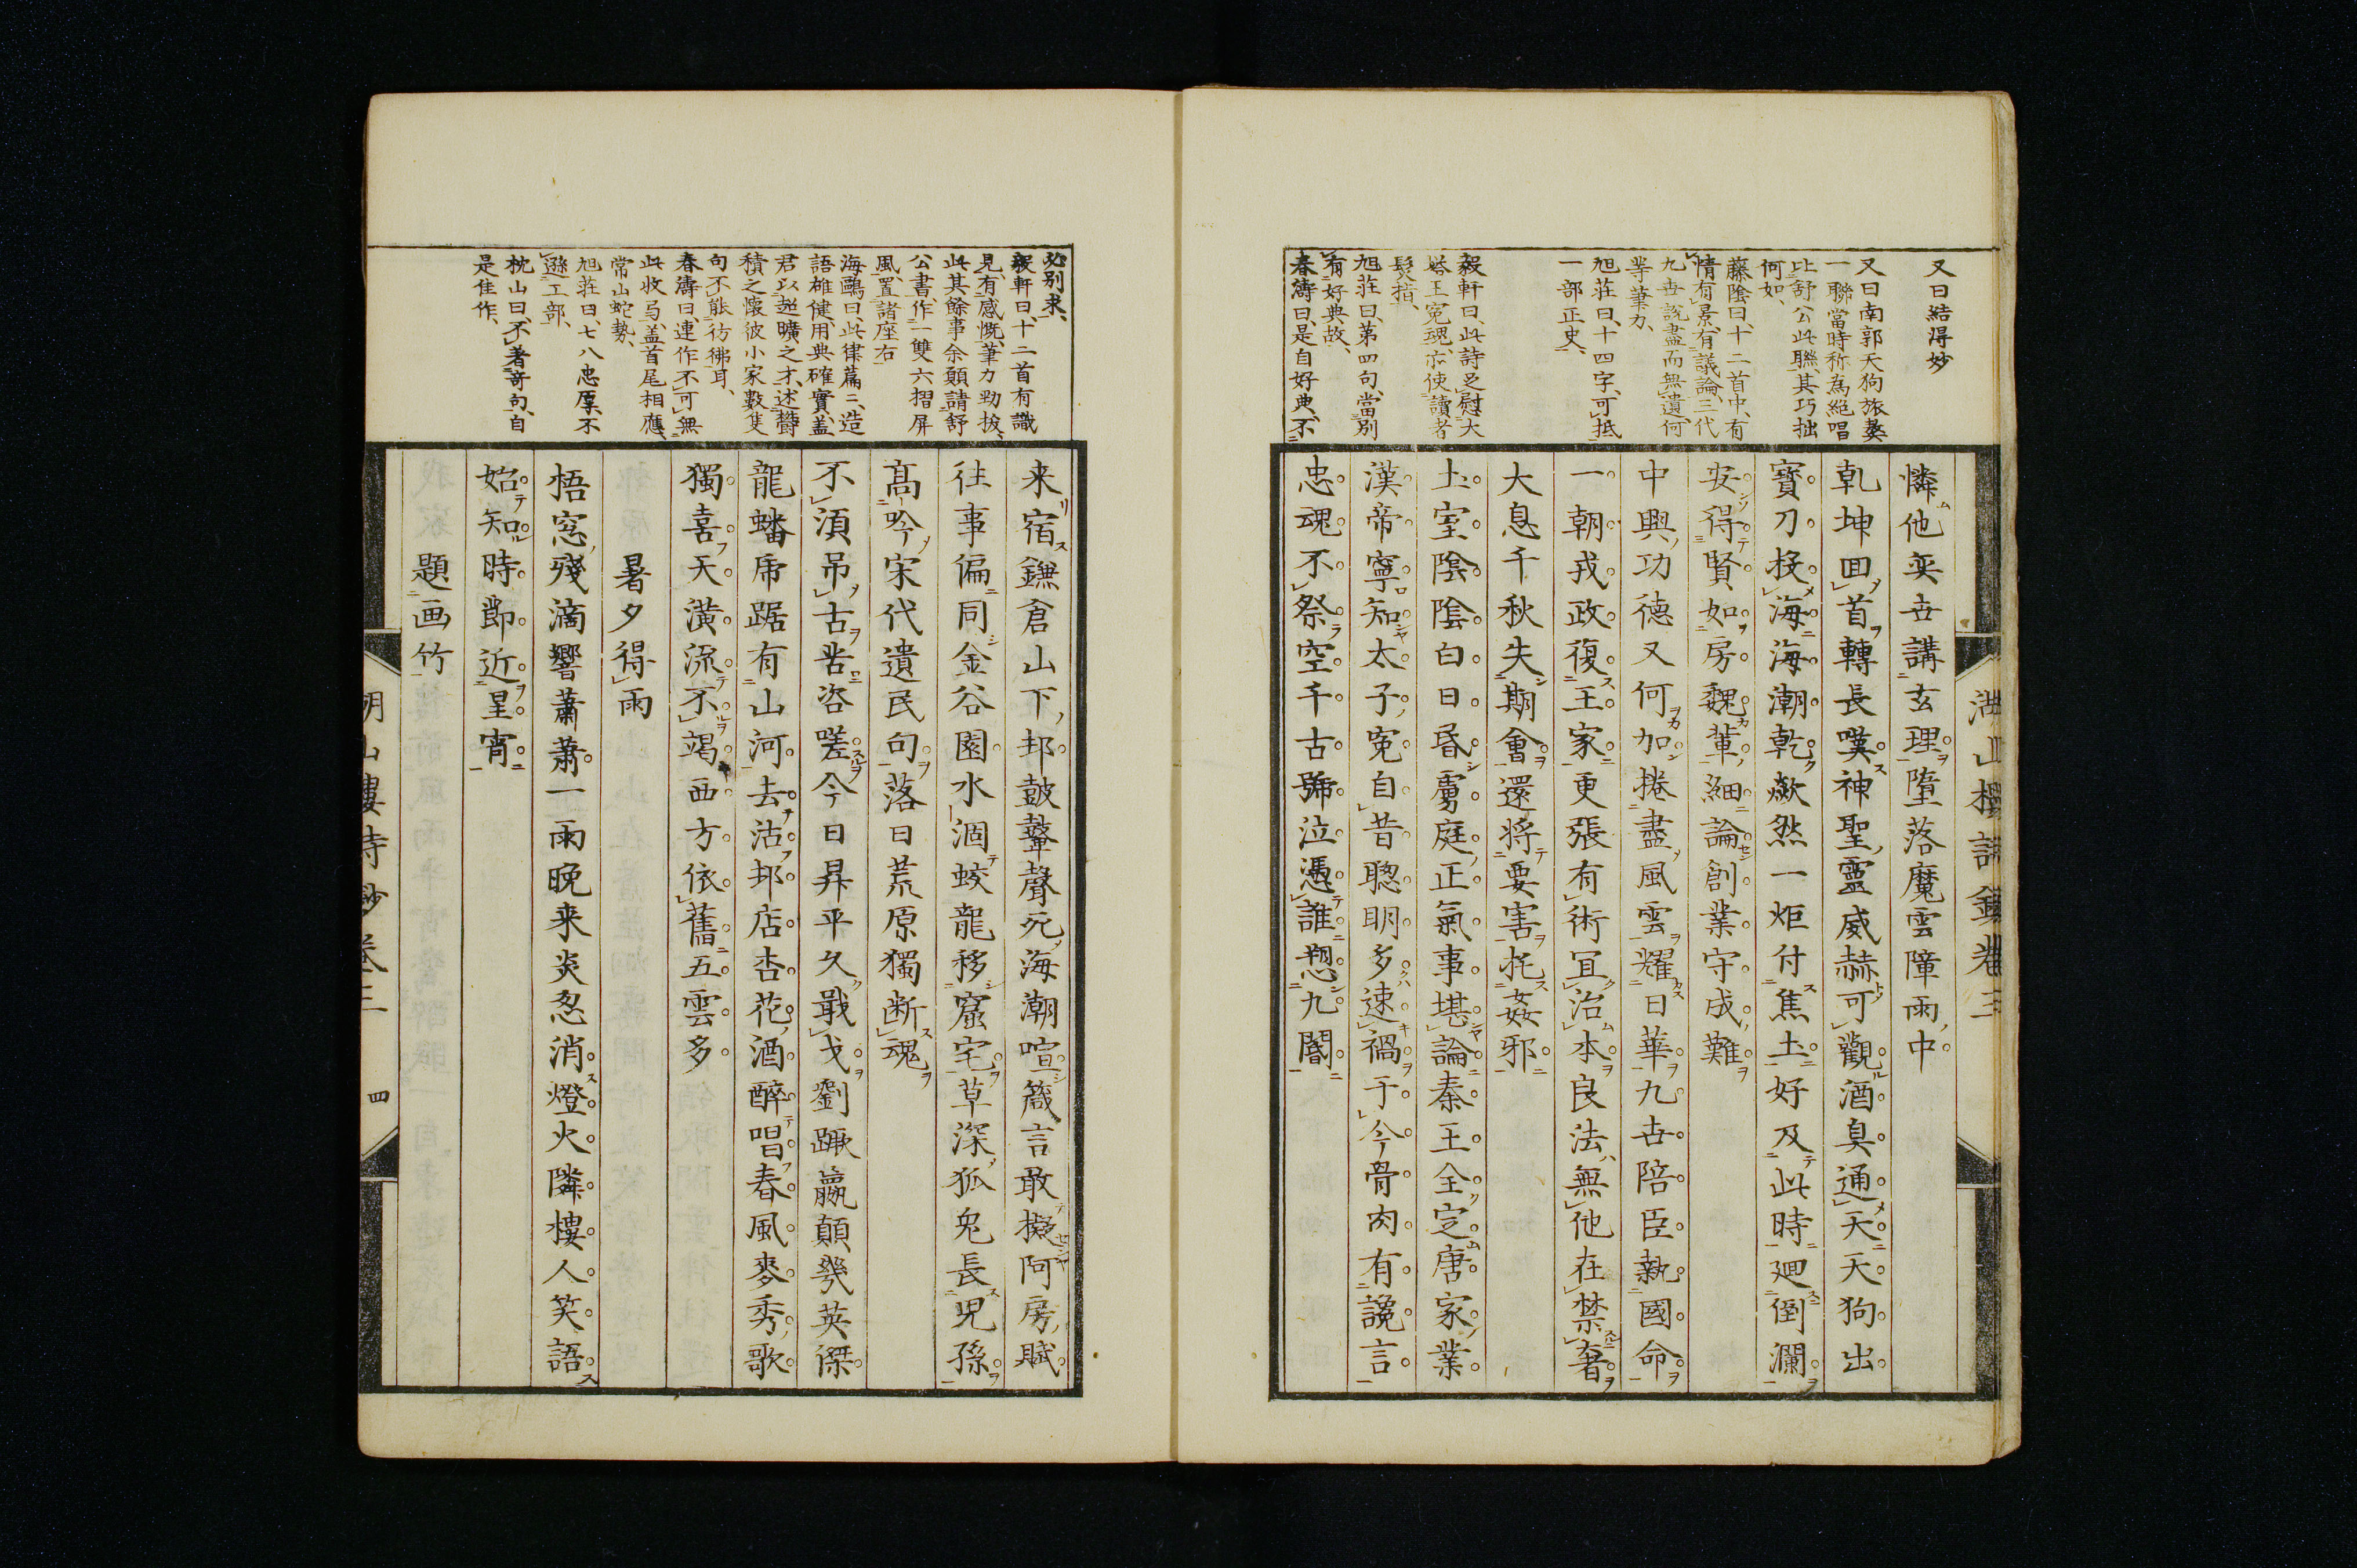 又曰結得妙
又曰南郭天狗旅葵
一聯當時称為絕唱
比舒公此聯其巧拙
何如、
藤陰曰、十二首中、有
情有景、有議論、三代
九世說盡而無遺、何
等筆力、
旭荘曰、十四字、可抵
一部正史、
毅軒曰、此詩足慰大
塔王冤魂、亦使讀者
髮指、
旭荘曰、第四句、當別
有好典故、
春濤曰、是自好典、不
憐他奕世講玄理隨落魔雲障雨中
乹坤囬首轉長嘆神聖靈威赫可觀酒臭通天天狗出
寶刀投海海潮乾歘然一炬付焦土好及此時廻倒瀾
安得賢如房魏輩細論創業守成難
中興功德又何加捲盡風雲耀日華九世陪臣執國命
一朝戎政復王家更張有術冝治本良法無他在禁奢
大息千秋失期會還將要害托姦邪
土室陰陰白日昏虜庭正氣事堪論秦王全定唐家業
漢帝寧知太子冤自昔聰明多速禍于今骨肉有讒言
忠魂不祭空千古號泣憑誰愬九閽
必別求、
毅軒曰、十二首有識
見、有感慨、筆力勁拔、
此其餘事、余願請舒
公書作一雙六摺屏
風、置諸座右
海鷗曰、此律篇二、造
語雄健、用典確實、蓋
君以超曠之才、述欝
積之懷、彼小家數隻
句不能彷彿耳、
春濤曰、連作不可無
此收局、盖首尾相應、
常山蛇勢、
旭荘曰、七八忠厚、不
遜工部、
枕山曰、不著奇句、自
是佳作、
来宿鎌倉山下邨鼓鼙聲死海潮喧箴言敢擬阿房賦
往事偏同金谷園水涸蛟龍移窟宅草深狐兔長兒孫
高吟宋代遺民句落日荒原獨断魂
不須吊古苦咨嗟今日昇平久戢戈劉蹶嬴顛幾英傑
龍蟠乕踞有山河去沽邨店杏花酒醉唱春風麥秀歌
獨喜天潢流不竭西方依舊五雲多
暑夕得雨
梧窓殘滴響蕭蕭一雨晚来炎忽消燈火隣樓人笑語
始知時節近星宵
題画竹
四